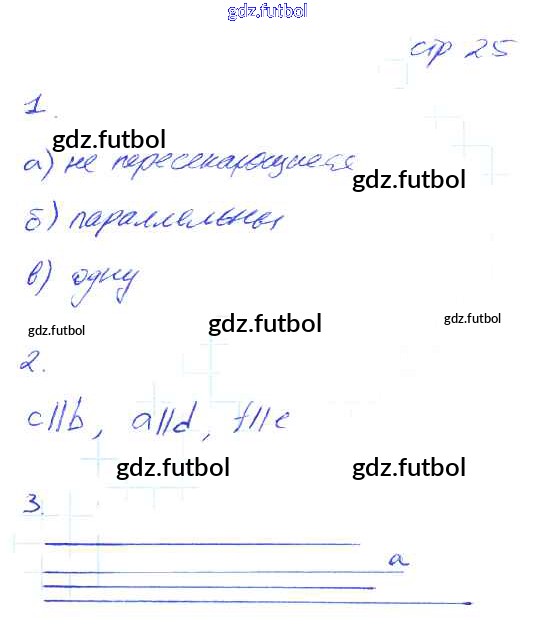 gdz.futbol
стр 25
1.
gdz.futbol
а) не пересекающиеся
gdz.futbol
б) параллельны
в) одну
gdz.futbol
gdz.futbol
gdz.futbol
2.
c||b, a||d, f||e
gdz.futbol
gdz.futbol
3.
a